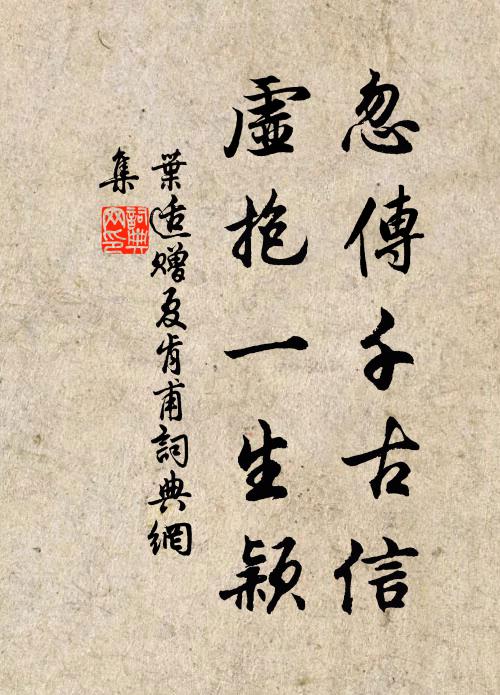 忽傳千古信
虛抱一生穎
葉适贈夏肯甫詞典網
集
詞典
网印